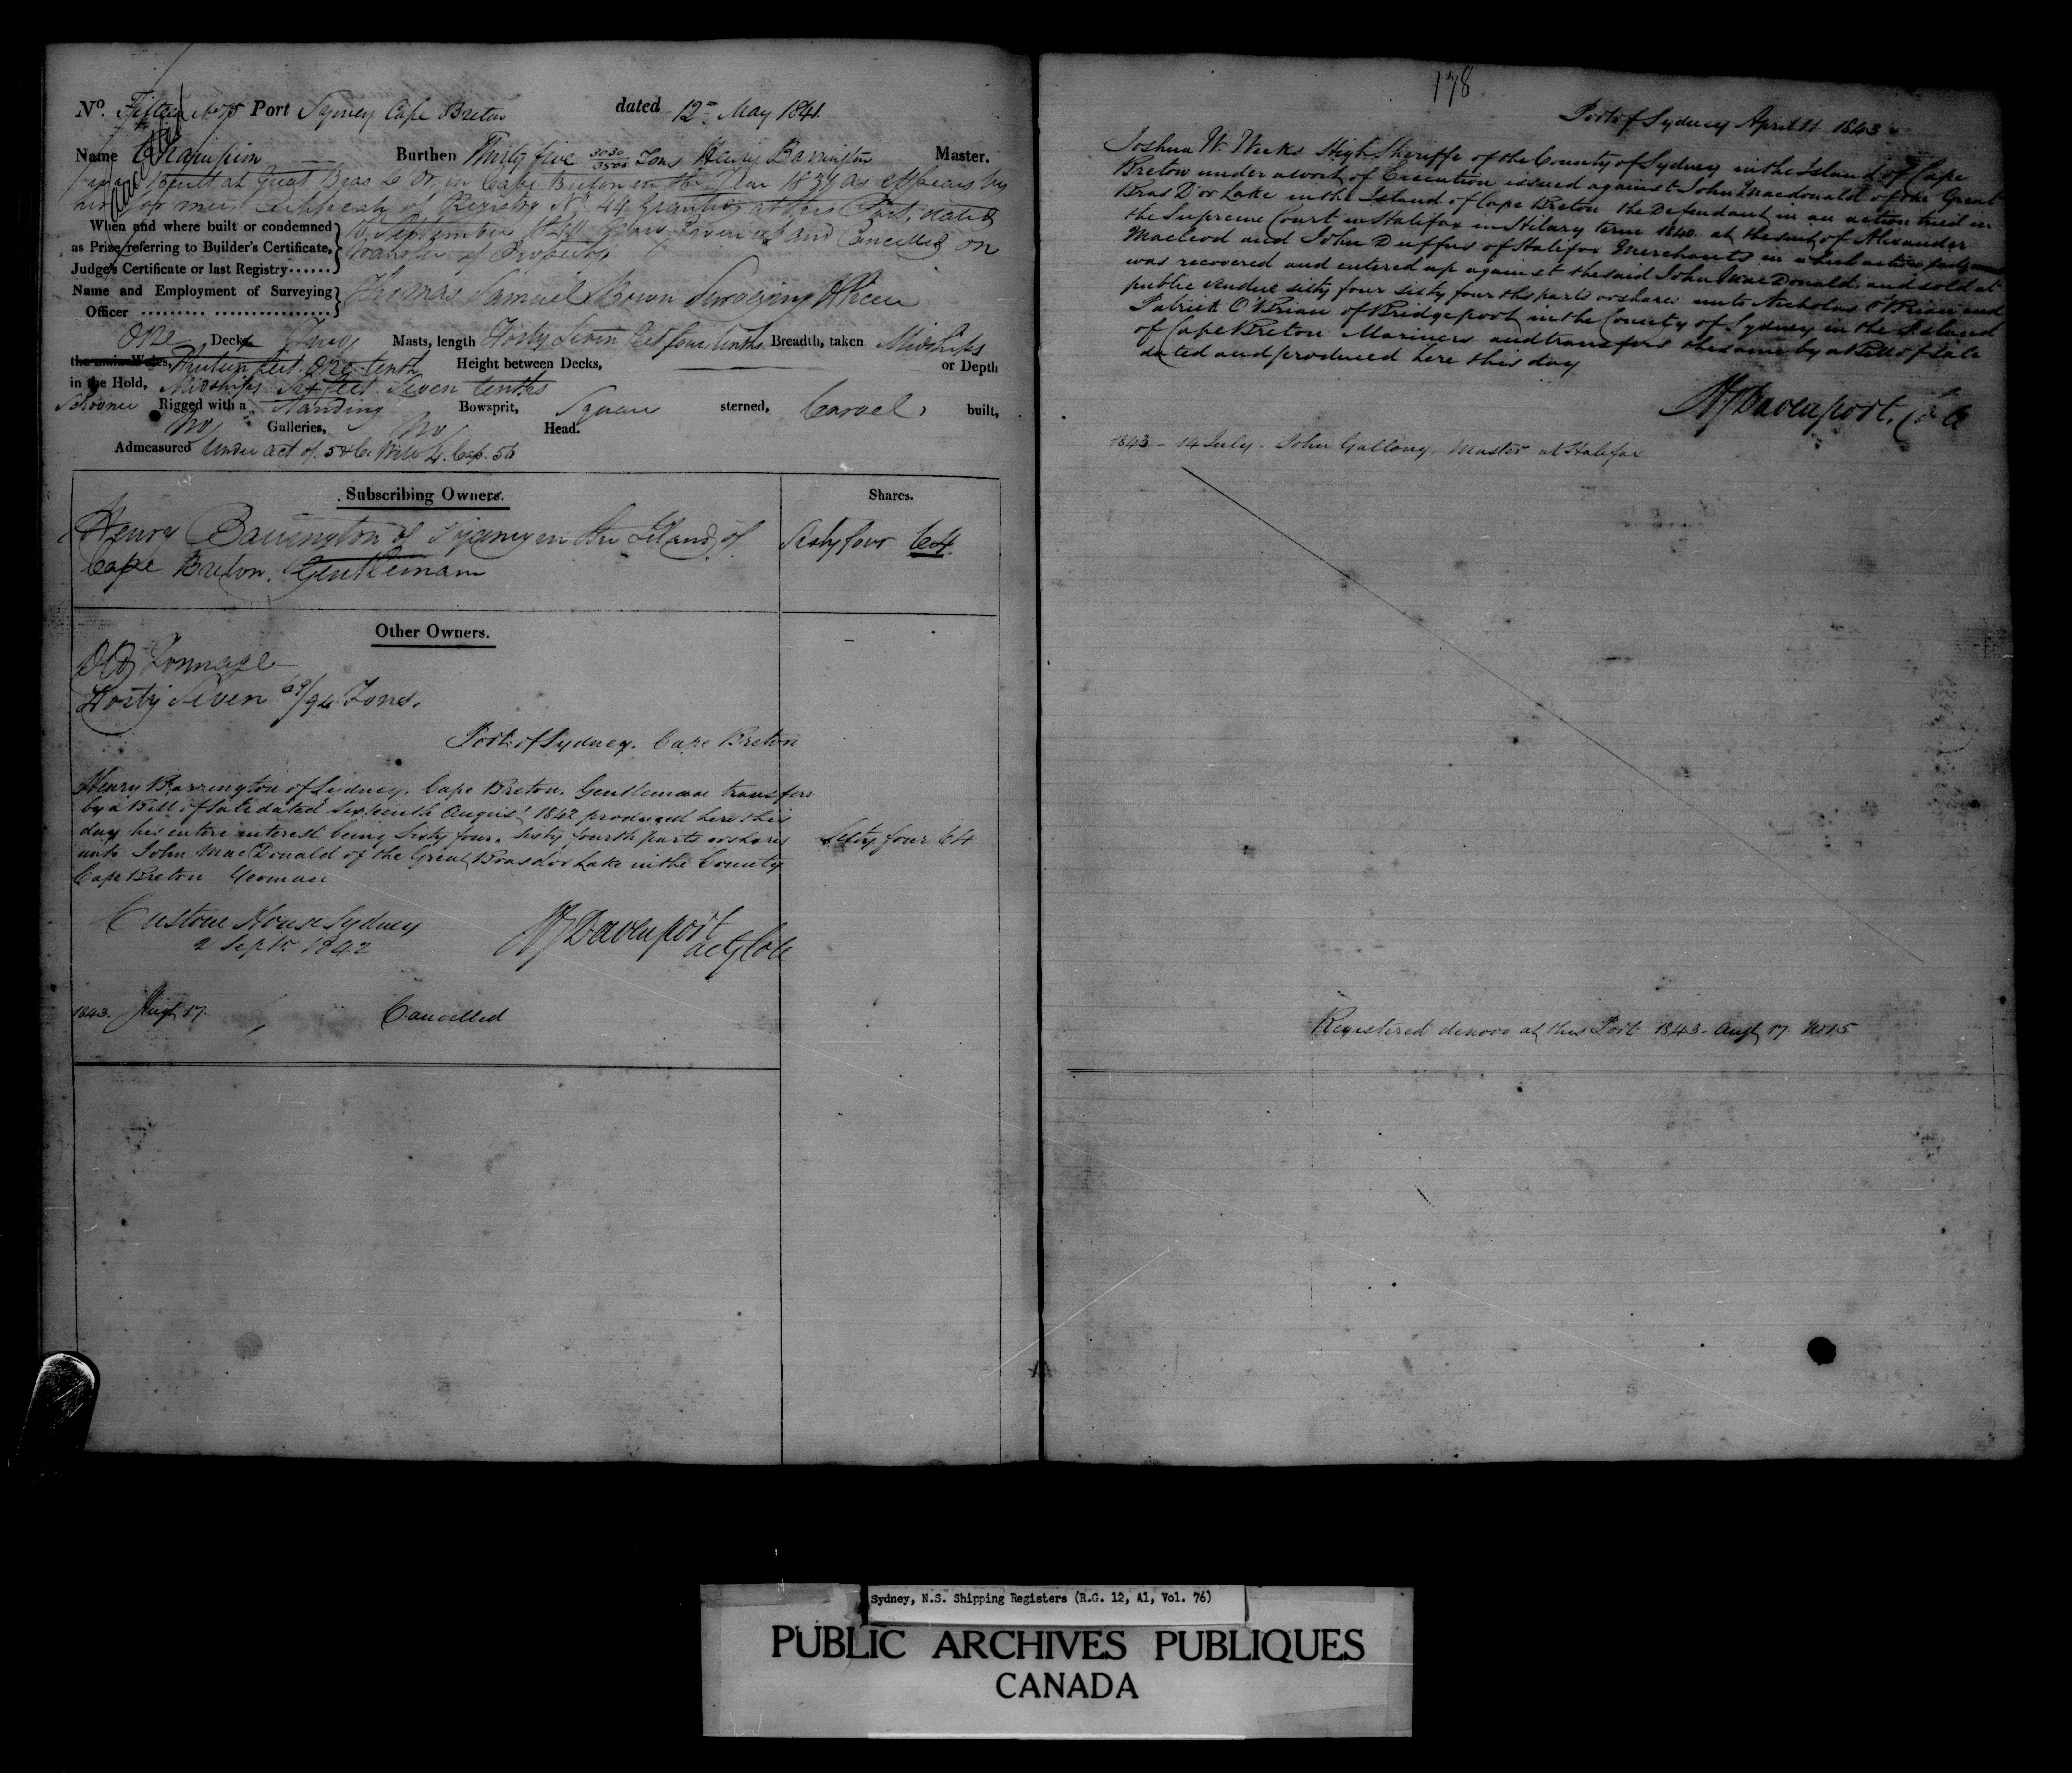 No. Fifteen No 15 Port Sydney Cape Breton dated 12th May 1841
Cancelled
Name Champion Burthen Thirty five 3030/3500 Tons Henry Barrington Master.
Built at Great Bras d'Or in Cape Breton in the Year 18 as appears by
her former Certificate of Registry No. 44 granted at this Port, dated
When and where built or condemned
as Prize referring to Builder's Certificate,
Judge's Certificate or last Registry
September 1840 now given up and Cancelled on
transfer of Property
Name and Employment of Surveying
Officer
Thomas Samuel Bown Surveying Officer
One Deck Two Masts, length Forty Seven feet four tenths Breadth, taken Midships
the main Wales, feet One tenth Height between Decks, or Depth
in the Hold, Midships Six feet Seven tenths
Schooner Rigged with a Standing Bowsprit, Square sterned, Carvel built,
No Galleries, No Head.
Admeasured Under Act of 5 & 6 Will 4. Cap. 56
Subscribing Owners. Shares.
Henry Barrington of Sydney in the Island of Sixty four 64
Cape Breton. Gentleman
Other Owners.
Old Tonnage
Forty Seven 69/94 Tons.
Port of Sydney. Cape Breton
Henry Barrington of Sydney. Cape Breton. Gentleman transfers
by a Bill of Sale dated Sixteenth August 1842 produced here this
day his entire interest being Sixty four. Sixty fourth parts or shares Sixty four 64
unto John MacDonald of the Great Bras dor Lake in the County
Cape Breton Yeoman
Custom House Sydney
2 Septr. 1842
Davenport
actg Coll
1843. Augt 17. Cancelled
178
Port of Sydney April 11. 1843
Joshua W. Weeks High Sheriffe of the County of Sydney in the Island of Cape
Breton under a writ of Execution issued against John Macdonald of the Great
Bras D'or Lake in the Island of Cape Breton the Defendant in an action tried in
the Supreme Court in Halifax in Hilary term 1840. at the suit of Alexander
Macleod and John Duffus of Halifax Merchants in which action judgment
was recovered and entered up against the said John MacDonald, and sold at
public vendue sixty four sixty fourths parts or shares unto Nicholas O'Brian and
Patrick O'Brian of Bridgeport in the County of Sydney in the Island
of Cape Breton Mariners and transfers the same by a Bill of Sale
dated and produced here this day
Davenport.
1843 - 14 July. John Gallong. Master at Halifax
Registered denovo at this Port 1843 - Augt 17. No 15
Sydney, N.S. Shipping Registers (R.G. 12, A1, Vol. 76)
PUBLIC ARCHIVES PUBLIQUES
CANADA